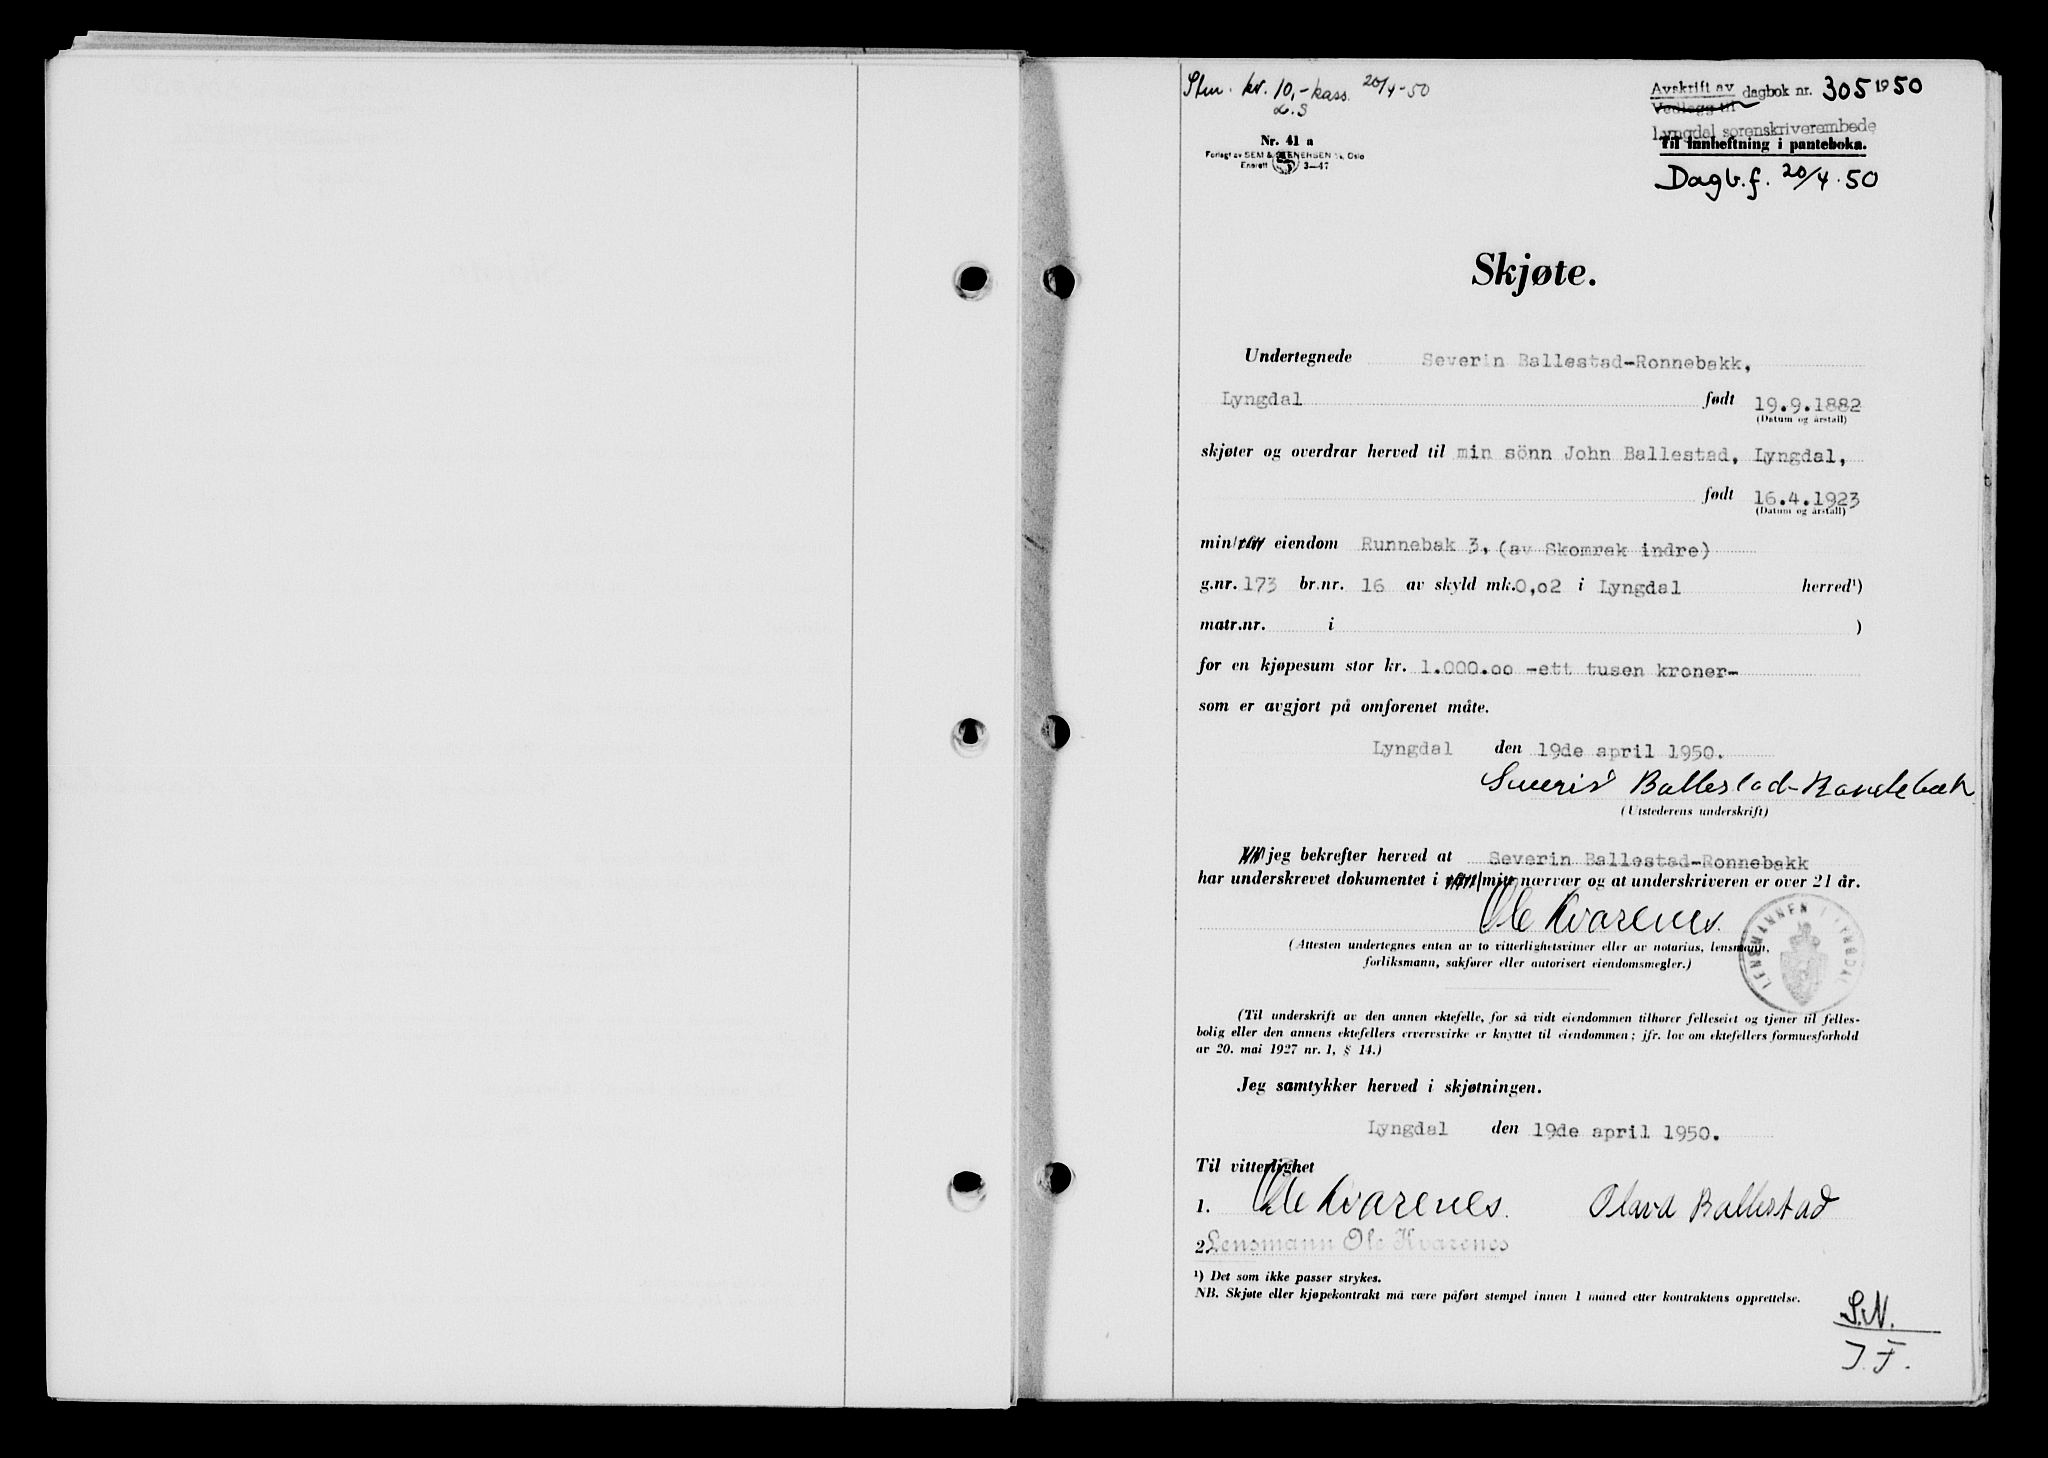 Stm. kr. 10,- kass. 20/4-50
L.S
Avskrift av dagbok nr. 305 1950
Vedlegg til
Lyngdal sorenskriverembede
Til innheftning i panteboka.
Dagb.f. 20/4.50
Nr. 41 a
Forlagt av SEM & STENERSEN A/s, Oslo
Enerett 3—47
Skjøte.
Undertegnede Severin Ballestad-Ronnebakk,
Lyngdal født 19.9.1882
(Datum og årstall)
skjøter og overdrar herved til min sönn John Ballestad, Lyngdal,
født 16.4.1923
(Datum og årstall)
min/vår eiendom Runnebak 3, (av Skomrak indre)
g.nr. 173 br.nr. 16 av skyld mk. 0,02 i Lyngdal herred¹)
matr.nr. i )
for en kjøpesum stor kr. 1.000.00 -ett tusen kroner-
som er avgjort på omforenet måte.
Lyngdal den 19de april 1950.
Severin Ballestad-Ronnebakk
(Utstederens underskrift)
jeg bekrefter herved at Severin Ballestad-Ronnebakk
har underskrevet dokumentet i vårt/mitt nærvær og at underskriveren er over 21 år.
Ole Kvarenes.
(Attesten undertegnes enten av to vitterlighetsvitner eller av notarius, lensmann,
forliksmann, sakfører eller autorisert eiendomsmegler.)
LENSMANNEN I LYNGDAL
(Til underskrift av den annen ektefelle, for så vidt eiendommen tilhører felleseiet og tjener til felles-
bolig eller den annens ektefellers ervervsvirke er knyttet til eiendommen; jfr. lov om ektefellers formuesforhold
av 20. mai 1927 nr. 1, § 14.)
Jeg samtykker herved i skjøtningen.
Lyngdal den 19de april 1950.
Til vitterlighet
1. Ole Kvarenes. Olava Ballestad
2. Lensmann Ole Kvarenes
¹) Det som ikke passer strykes.
NB. Skjøte eller kjøpekontrakt må være påført stempel innen 1 måned etter kontraktens opprettelse.
S.N.
J.F.